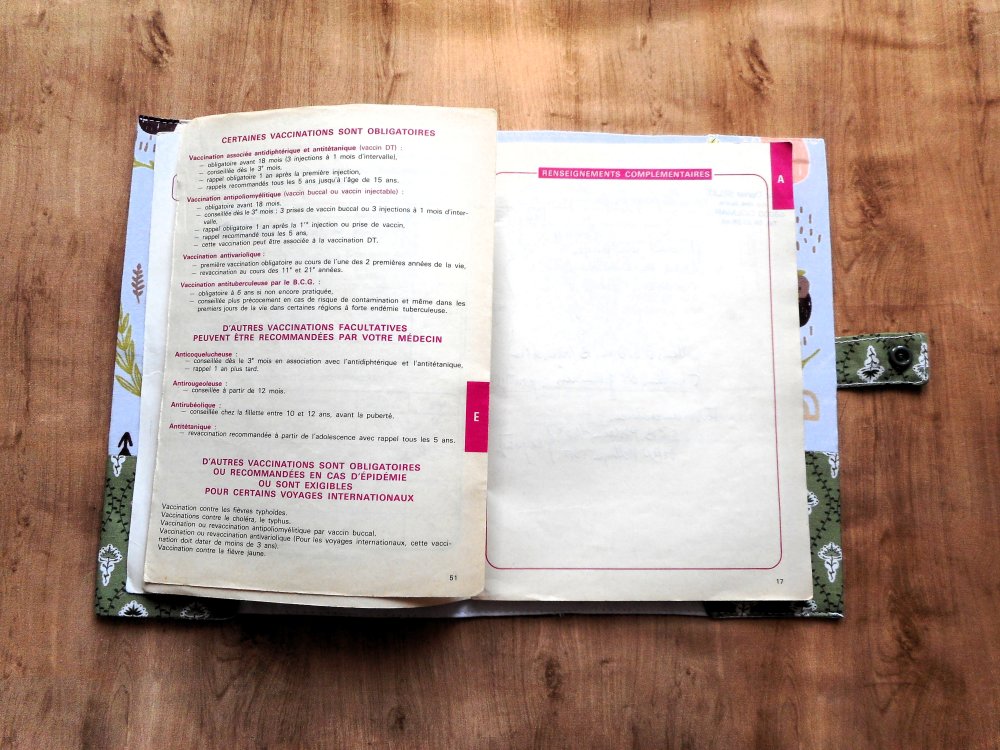 CERTAINES VACCINATIONS SONT OBLIGATOIRES
Vaccination associée antidiphtérique et antitétanique (vaccin DT) :
— obligatoire avant 18 mois (3 injections à 1 mois d'intervalle),
— conseillée dès le 3e mois,
— rappel obligatoire 1 an après la première injection,
— rappels recommandés tous les 5 ans jusqu'à l'âge de 15 ans.
Vaccination antipoliomyélitique (vaccin buccal ou vaccin injectable) :
— obligatoire avant 18 mois,
— conseillée dès le 3e mois : 3 prises de vaccin buccal ou 3 injections à 1 mois d'inter-
valle,
— rappel obligatoire 1 an après la 1re injection ou prise de vaccin,
— rappel recommandé tous les 5 ans,
— cette vaccination peut être associée à la vaccination DT.
Vaccination antivariolique :
— première vaccination obligatoire au cours de l'une des 2 premières années de la vie,
— revaccination au cours des 11e et 21e années.
Vaccination antituberculeuse par le B.C.G. :
— obligatoire à 6 ans si non encore pratiquée,
— conseillée plus précocement en cas de risque de contamination et même dans les
premiers jours de la vie dans certaines régions à forte endémie tuberculeuse.
D'AUTRES VACCINATIONS FACULTATIVES
PEUVENT ÊTRE RECOMMANDÉES PAR VOTRE MÉDECIN
Anticoquelucheuse :
— conseillée dès le 3e mois en association avec l'antidiphtérique et l'antitétanique,
— rappel 1 an plus tard.
Antirougeoleuse :
— conseillée à partir de 12 mois.
Antirubéolique :
— conseillée chez la fillette entre 10 et 12 ans, avant la puberté.
Antitétanique :
— revaccination recommandée à partir de l'adolescence avec rappel tous les 5 ans.
D'AUTRES VACCINATIONS SONT OBLIGATOIRES
OU RECOMMANDÉES EN CAS D'ÉPIDÉMIE
OU SONT EXIGIBLES
POUR CERTAINS VOYAGES INTERNATIONAUX
Vaccination contre les fièvres typhoïdes.
Vaccinations contre le choléra, le typhus.
Vaccination ou revaccination antipoliomyélitique par vaccin buccal.
Vaccination ou revaccination antivariolique (Pour les voyages internationaux, cette vacci-
nation doit dater de moins de 3 ans).
Vaccination contre la fièvre jaune.
51
E
RENSEIGNEMENTS COMPLÉMENTAIRES
A
17